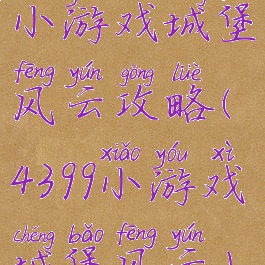 小游戏城堡
fēng yún gōng lüè
风云攻略(
xiǎo yóu xì
4399小游戏
chéng bǎo fēng yún
城堡风云)